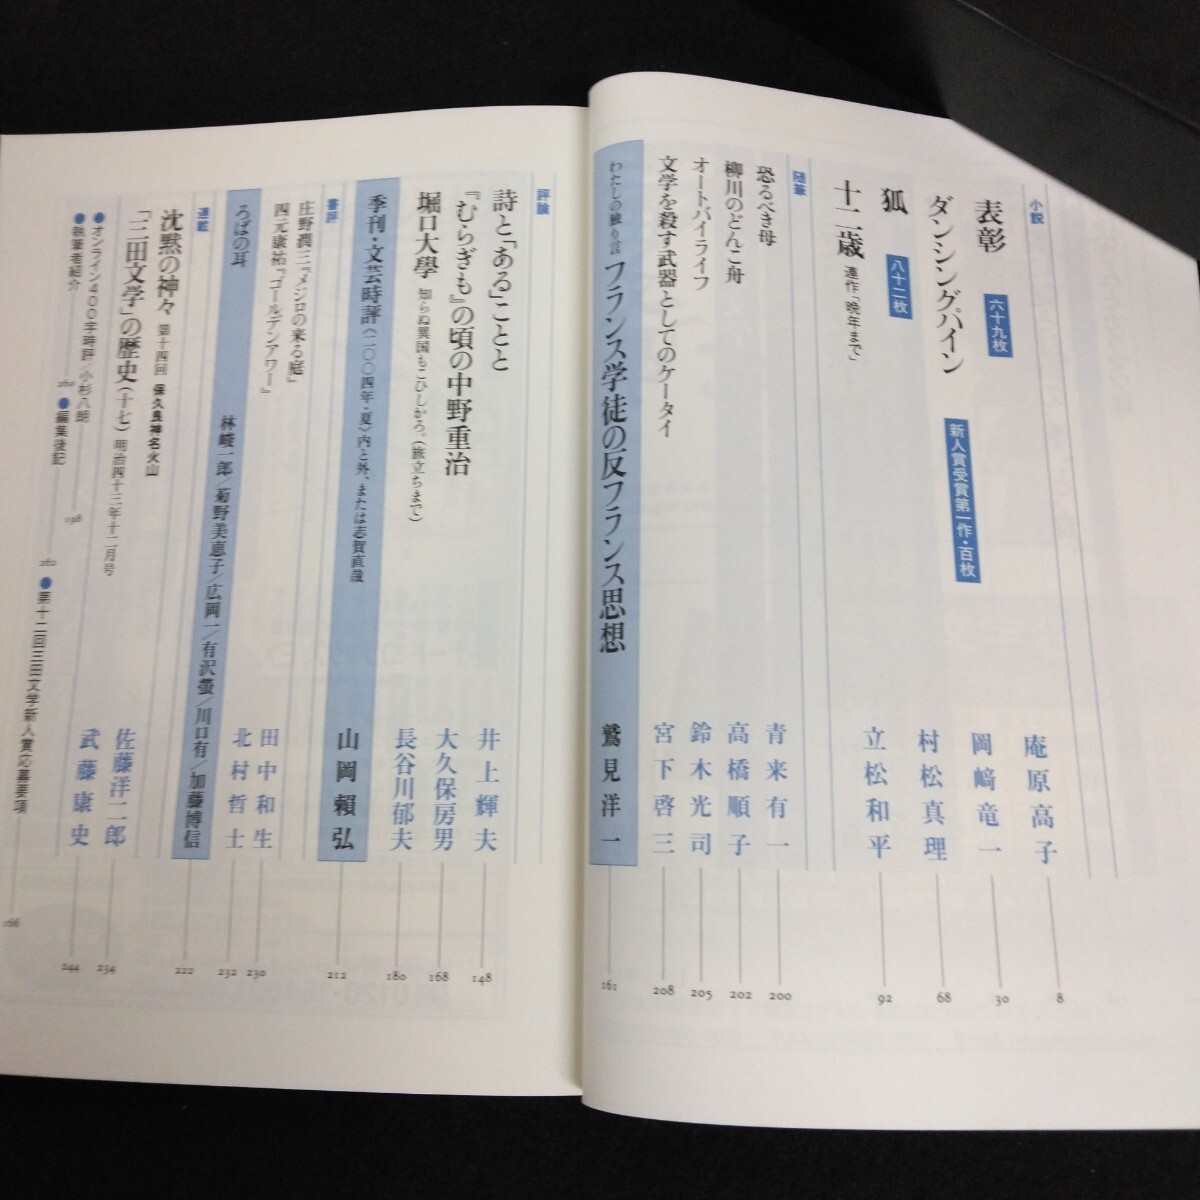 小説
表彰
六十九枚
庵原高子
8
ダンシングパイン
新人賞受賞第一作・百枚
岡﨑竜一
30
狐
八十二枚
村松真理
68
十二歳
連作「晩年まで」
立松和平
92
随筆
恐るべき母
青来有一
200
柳川のどんこ舟
高橋順子
202
オートバイライフ
鈴木光司
205
文学を殺す武器としてのケータイ
宮下啓三
208
わたしの独り言
フランス学徒の反フランス思想
鷲見洋一
161
評論
詩と「ある」ことと
井上輝夫
148
『むらぎも』の頃の中野重治
大久保房男
168
堀口大學
知らぬ異国もこひしかろ。(旅立ちまで)
長谷川郁夫
180
季刊・文芸時評
(二〇〇四年・夏)
内と外、または志賀直哉
山岡賴弘
212
書評
庄野潤三『メジロの来る庭』
田中和生
230
四元康祐『ゴールデンアワー』
北村哲士
232
ろばの耳
林峻一郎/菊野美恵子/広岡一/有沢螢/川口有/加藤博信
222
連載
沈黙の神々
第十四回
保久良神名火山
佐藤洋二郎
234
「三田文学」の歴史(十七)
明治四十三年十二月号
武藤康史
244
●オンライン400字時評/小杉八朗
198
●執筆者紹介
260
●編集後記
262
●第十二回三田文学新人賞応募要項
266